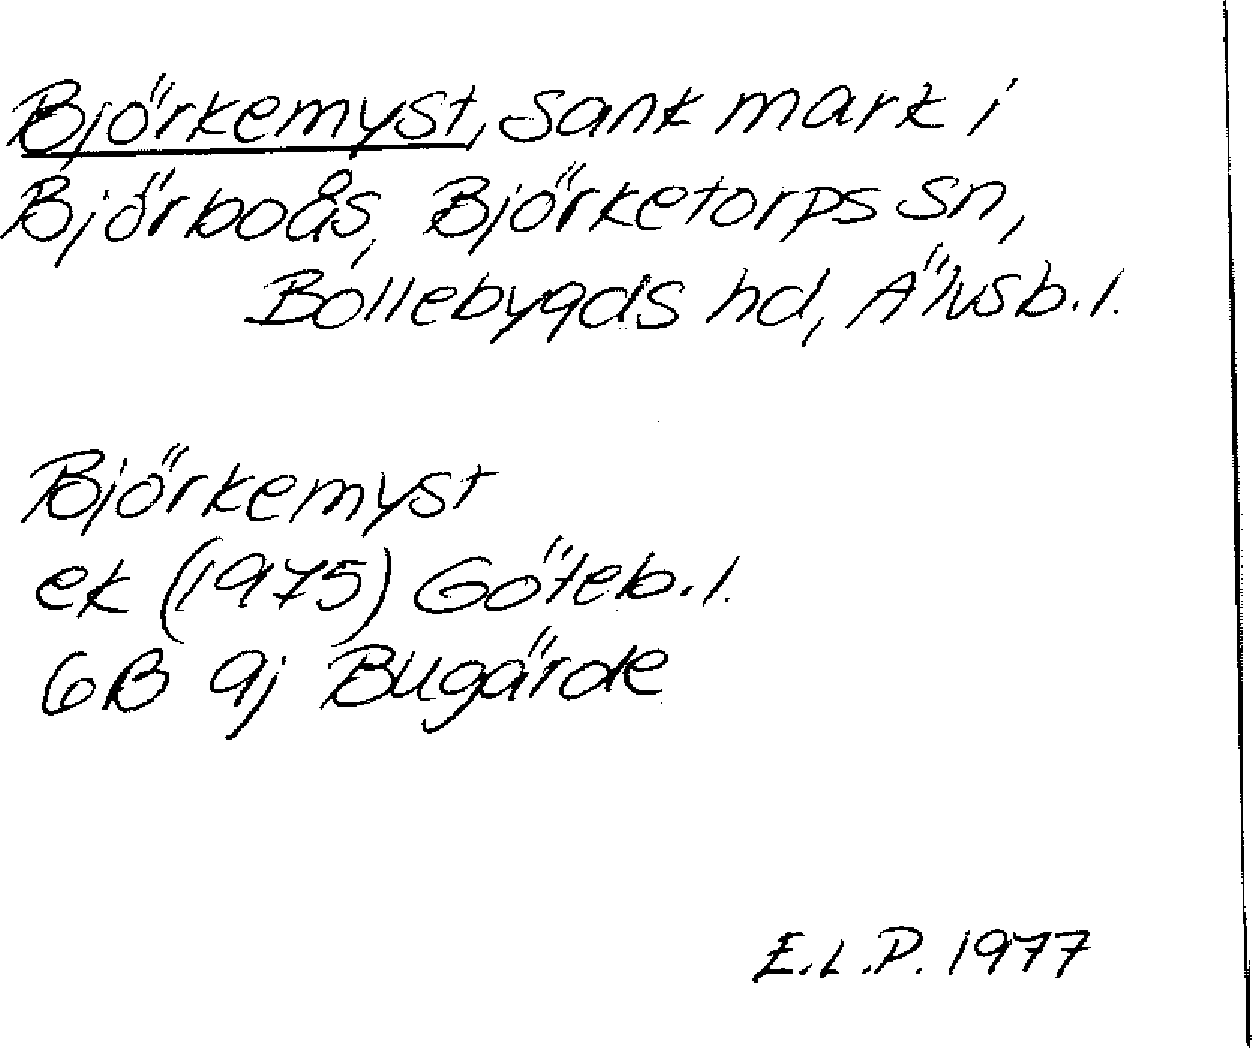 Björkemyst, sank mark i
Björboås, Björketorps sn,
Bollebygds hd, Älvsb. l.
Björkemyst
ek (1975) Göteb. l.
6B 9j Bugärde
E.L.P. 1977